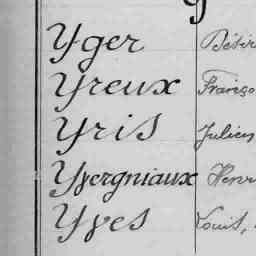 Yger Désir
Yreux Franço
Yris Julien
Yvergniaux Henri
Yves Louis,